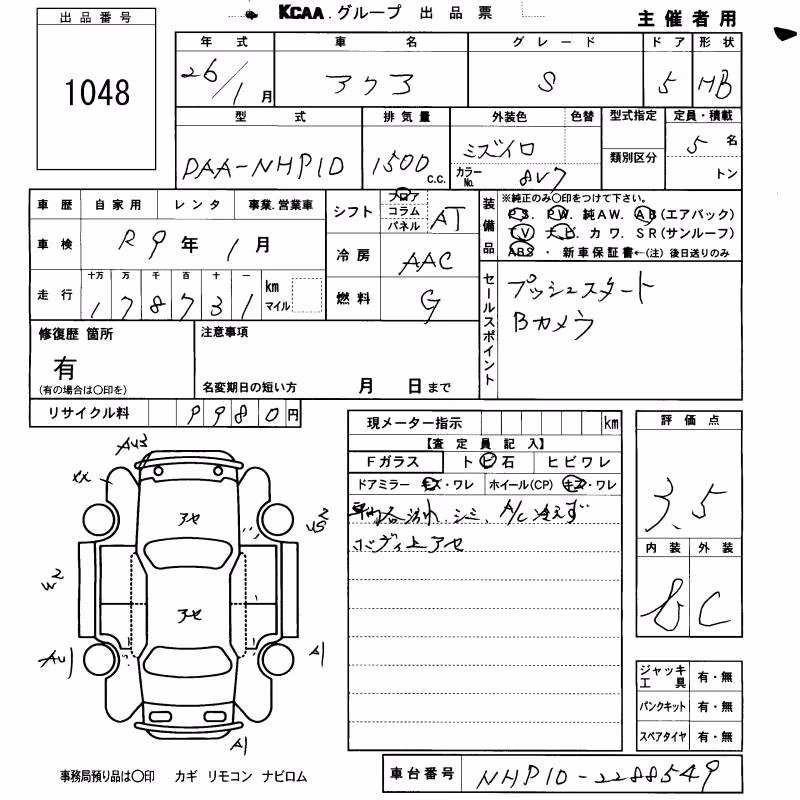 KCAA.グループ 出品票
主催者用
出品番号
1048
年式 車名 グレード ドア 形状
26/1月 アクア S 5 HB
型式 排気量 外装色 色替 型式指定 定員・積載
DAA-NHP10 1500 c.c. ミズイロ 類別区分 5名
カラーNo. 8V7 トン
車歴 自家用 レンタ 事業.営業車
車検 R9年1月
走行 十万 万 千 百 十 一
178731 km マイル
シフト フロア コラム パネル AT
冷房 AAC
燃料 G
装備品 ※純正のみ○印をつけて下さい。
PS. PW. 純AW. AB(エアバック)
TV ナビ. カワ. SR(サンルーフ)
ABS ・ 新車保証書←(注) 後日送りのみ
セールスポイント
プッシュスタート
Bカメラ
修復歴 箇所
有
(有の場合は○印を)
注意事項
名変期日の短い方 月 日まで
リサイクル料 9980円
現メーター指示 km
【査定員記入】
Fガラス トビ石 ヒビワレ
ドアミラー キズ・ワレ ホイール(CP) キズ・ワレ
シミ、A/C冷えず
ボディ上アセ
評価点
3.5
内装 外装
C
ジャッキ工具 有・無
パンクキット 有・無
スペアタイヤ 有・無
AU3
XX
アセ
US2
W2
アセ
AU1
A1
A1
事務局預り品は○印 カギ リモコン ナビロム
車台番号 NHP10-2288549